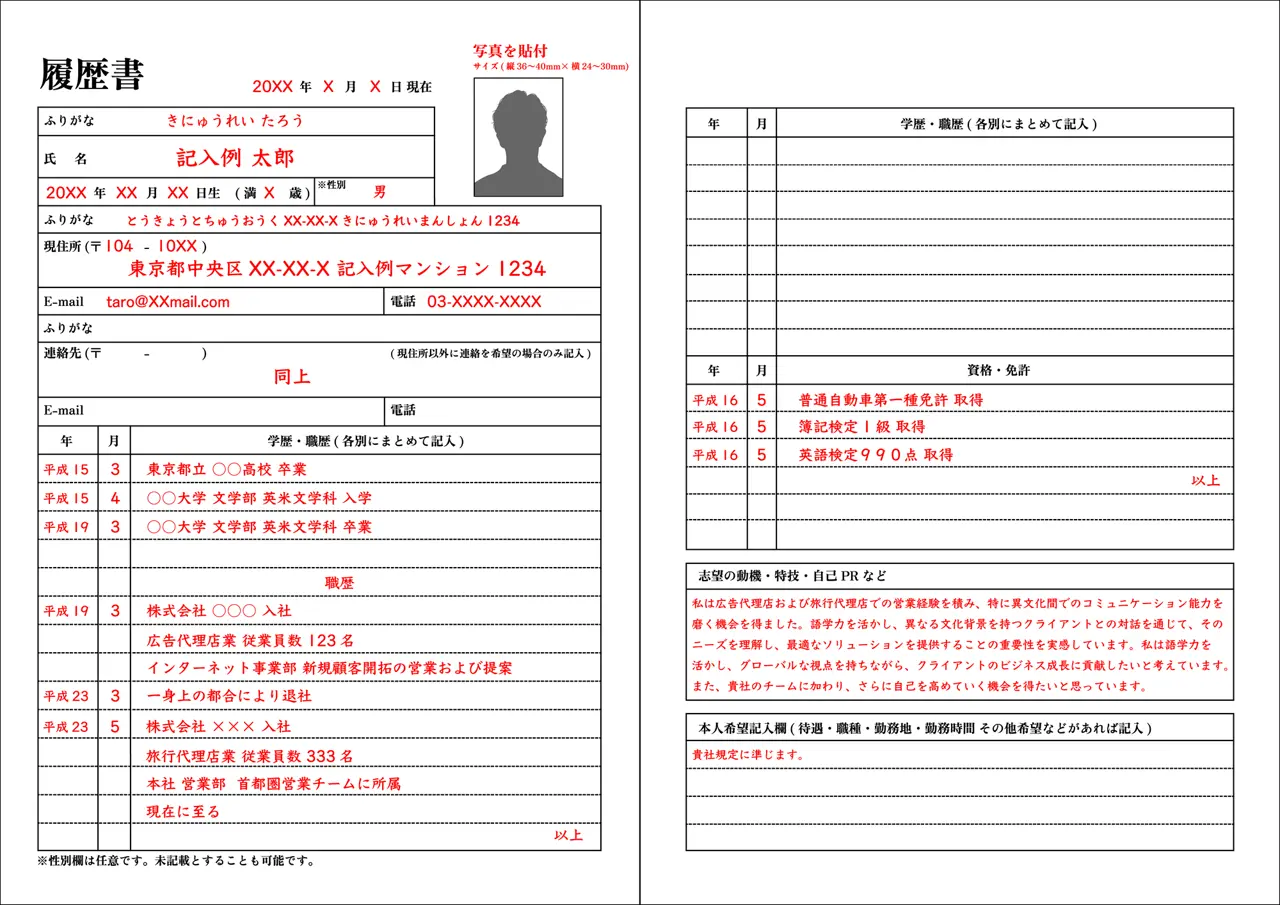 履歴書
20XX 年 X 月 X 日 現在
写真を貼付
サイズ ( 縦 36〜40mm× 横 24〜30mm)
ふりがな きにゅうれい たろう
氏 名 記入例 太郎
20XX 年 XX 月 XX 日生 ( 満 X 歳 ) ※性別 男
ふりがな とうきょうとちゅうおうく XX-XX-X きにゅうれいまんしょん 1234
現住所 (〒104 - 10XX )
東京都中央区 XX-XX-X 記入例マンション 1234
E-mail taro@XXmail.com 電話 03-XXXX-XXXX
ふりがな
連絡先 (〒 - ) ( 現住所以外に連絡を希望の場合のみ記入 )
同上
E-mail 電話
年 月 学歴・職歴 ( 各別にまとめて記入 )
平成 15 3 東京都立 〇〇高校 卒業
平成 15 4 〇〇大学 文学部 英米文学科 入学
平成 19 3 〇〇大学 文学部 英米文学科 卒業
職歴
平成 19 3 株式会社 〇〇〇 入社
広告代理店業 従業員数 123 名
インターネット事業部 新規顧客開拓の営業および提案
平成 23 3 一身上の都合により退社
平成 23 5 株式会社 ××× 入社
旅行代理店業 従業員数 333 名
本社 営業部 首都圏営業チームに所属
現在に至る
以上
※性別欄は任意です。未記載とすることも可能です。
年 月 学歴・職歴 ( 各別にまとめて記入 )
年 月 資格・免許
平成 16 5 普通自動車第一種免許 取得
平成 16 5 簿記検定１級 取得
平成 16 5 英語検定９９０点 取得
以上
志望の動機・特技・自己 PR など
私は広告代理店および旅行代理店での営業経験を積み、特に異文化間でのコミュニケーション能力を
磨く機会を得ました。語学力を活かし、異なる文化背景を持つクライアントとの対話を通じて、その
ニーズを理解し、最適なソリューションを提供することの重要性を実感しています。私は語学力を
活かし、グローバルな視点を持ちながら、クライアントのビジネス成長に貢献したいと考えています。
また、貴社のチームに加わり、さらに自己を高めていく機会を得たいと思っています。
本人希望記入欄 ( 待遇・職種・勤務地・勤務時間 その他希望などがあれば記入 )
貴社規定に準じます。